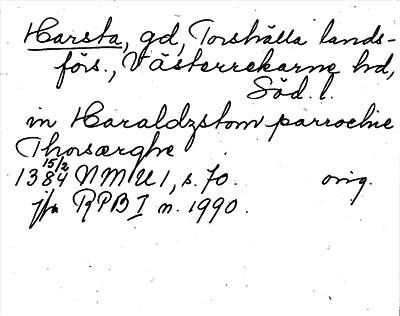 Harsta, gd, Torshälla lands-
förs., Västerrekarne hd,
Söd. l.
in Haraldzstom parrochie
Thorsærghe
15/2
1384 NMU 1, s. 70. orig.
jfr RPB I n. 1990.